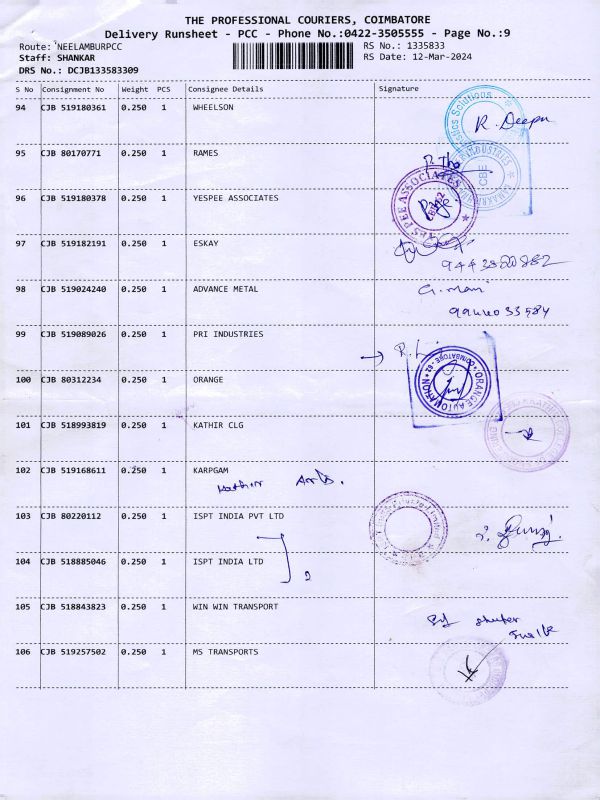 THE PROFESSIONAL COURIERS, COIMBATORE
Delivery Runsheet - PCC - Phone No.:0422-3505555 - Page No.:9
Route: NEELAMBURPCC RS No.: 1335833
Staff: SHANKAR RS Date: 12-Mar-2024
DRS No.: DCJB133583309
S No Consignment No Weight PCS Consignee Details Signature
94 CJB 519180361 0.250 1 WHEELSON
R. Deepu
95 CJB 80170771 0.250 1 RAMES
INDUSTRIES
CBE
96 CJB 519180378 0.250 1 YESPEE ASSOCIATES
YES PEE ASSOCIATES
97 CJB 519182191 0.250 1 ESKAY
98 CJB 519024240 0.250 1 ADVANCE METAL
G. Mani
99 CJB 519089026 0.250 1 PRI INDUSTRIES
100 CJB 80312234 0.250 1 ORANGE
ORANGE AUTOMATION
101 CJB 518993819 0.250 1 KATHIR CLG
102 CJB 519168611 0.250 1 KARPGAM
Kathir Arts.
103 CJB 80220112 0.250 1 ISPT INDIA PVT LTD
104 CJB 518885046 0.250 1 ISPT INDIA LTD
2
105 CJB 518843823 0.250 1 WIN WIN TRANSPORT
106 CJB 519257502 0.250 1 MS TRANSPORTS